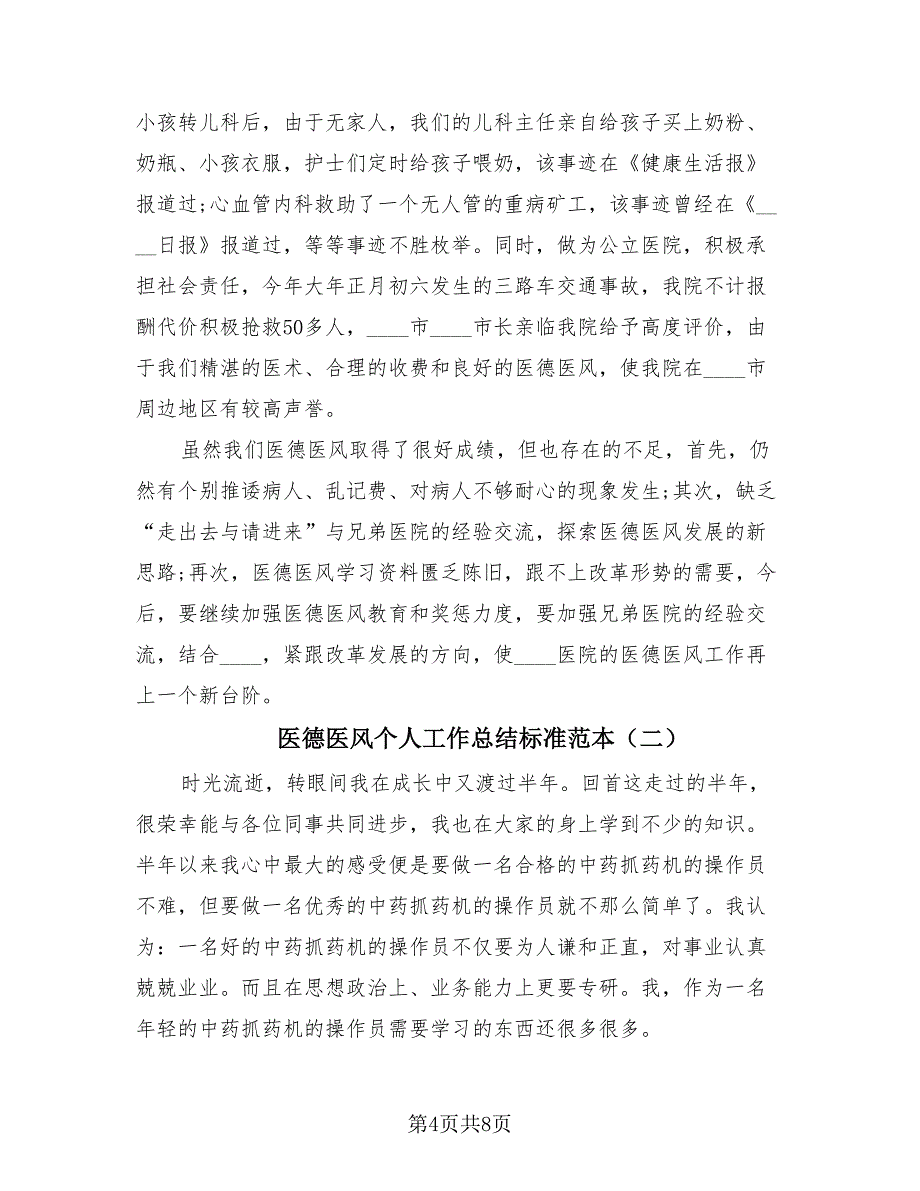 小孩转儿科后，由于无家人，我们的儿科主任亲自给孩子买上奶粉、
奶瓶、小孩衣服，护士们定时给孩子喂奶，该事迹在《健康生活报》
报道过;心血管内科救助了一个无人管的重病矿工，该事迹曾经在《__
__日报》报道过，等等事迹不胜枚举。同时，做为公立医院，积极承
担社会责任，今年大年正月初六发生的三路车交通事故，我院不计报
酬代价积极抢救50多人，____市____市长亲临我院给予高度评价，由
于我们精湛的医术、合理的收费和良好的医德医风，使我院在____市
周边地区有较高声誉。
虽然我们医德医风取得了很好成绩，但也存在的不足，首先，仍
然有个别推诿病人、乱记费、对病人不够耐心的现象发生;其次，缺乏
“走出去与请进来”与兄弟医院的经验交流，探索医德医风发展的新
思路;再次，医德医风学习资料匮乏陈旧，跟不上改革形势的需要，今
后，要继续加强医德医风教育和奖惩力度，要加强兄弟医院的经验交
流，结合____，紧跟改革发展的方向，使____医院的医德医风工作再
上一个新台阶。
医德医风个人工作总结标准范本（二）
时光流逝，转眼间我在成长中又渡过半年。回首这走过的半年，
很荣幸能与各位同事共同进步，我也在大家的身上学到不少的知识。
半年以来我心中最大的感受便是要做一名合格的中药抓药机的操作员
不难，但要做一名优秀的中药抓药机的操作员就不那么简单了。我认
为：一名好的中药抓药机的操作员不仅要为人谦和正直，对事业认真
兢兢业业。而且在思想政治上、业务能力上更要专研。我，作为一名
年轻的中药抓药机的操作员需要学习的东西还很多很多。
第4页共8页